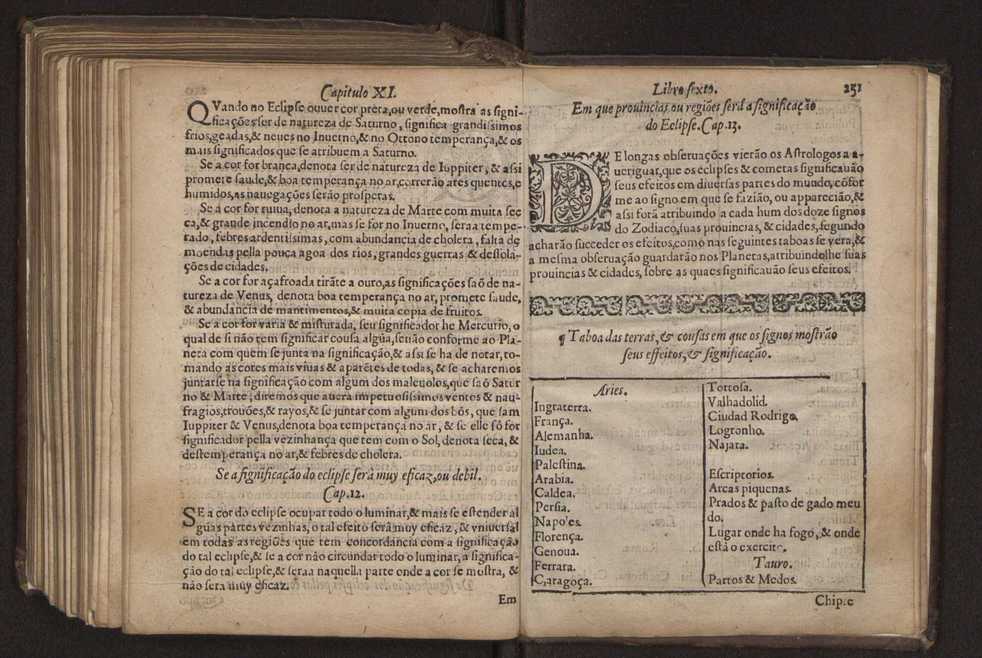 Capitulo XI.
QVando no Eclipse ouuer cor preta, ou verde, mostra as signi-
ficações ser de natureza de Saturno, significa grandissimos
frios, geadas, & neues no Inuerno, & no Ottono temperança, & os
mais significados que se atribuem a Saturno.
Se a cor for branca, denota ser de natureza de Iuppiter, & assi
promete saude, & boa temperança no ar, correrão ares quentes, e
humidos, as nauegações serão prosperas.
Se a cor for ruiua, denota a natureza de Marte com muita sec
ca, & grande incendio no ar, mas se for no Inuerno, sera a tempe-
rado, febres ardentissimas, com abundancia de cholera, falta de
moendas pella pouca agoa dos rios, grandes guerras & dessola-
ções de cidades.
Se a cor for açafroada tirãte a ouro, as significações saõ de na-
tureza de Venus, denota boa temperança no ar, promete saude,
& abundancia de mantimentos, & muita copia de fruitos.
Se a cor for varia & misturada, seu significador he Mercurio, o
qual de si não tem significar cousa algũa, senão conforme ao Pla-
neta com quem se junta na significação, & assi se ha de notar, to-
mando as cores mais viuas & aparẽtes de todas, & se acharemos
juntarse na significação com algum dos maleuolos, que saõ Satur
no & Marte, diremos que auera impetuosissimos ventos & nau-
fragios, trouões, & rayos, & se juntar com algum dos bõs, que sam
Iuppiter & Venus, denota boa temperança no ar, & se elle só for
significador pella vezinhança que tem com o Sol, denota seca, &
destemperança no ar, & febres de cholera.
Se a significação do eclipse será muy eficaz, ou debil.
Cap. 12.
SE a cor do eclipse ocupar todo o luminar, & mais se estender al
gũas partes vezinhas, o tal efeito será muy eficaz, & vniuersal
em todas as regiões que tem concordancia com a significação
do tal eclipse, & se a cor não circundar todo o luminar, a significa-
ção do tal eclipse, & sera a naquella parte onde a cor se mostra, &
não sera muy eficaz.
Em
Libro sexto. 251
Em que prouincias ou regiões será a significação
do Eclipse. Cap. 13.
DE longas obseruações vierão os Astrologos a a-
ueriguar, que os eclipses & cometas significauão
seus efeitos em diuersas partes do mundo, cõfor
me ao signo em que se fazião, ou apparecião, &
assi forã atribuindo a cada hum dos doze signos
do Zodiaco, suas prouincias, & cidades, segundo
acharão succeder os efeitos, como nas seguintes taboas se vera, &
a mesma obseruação guardarão nos Planetas, atribuindolhe suas
prouincias & cidades, sobre as quaes significauão seus efeitos.
¶ Taboa das terras, & cousas em que os signos mostrão
seus effeitos, & significação.
Aries.
Ingraterra.
França.
Alemanha.
Iudea.
Palestina.
Arabia.
Caldea.
Persia.
Napoles.
Florença.
Genoua.
Ferrara.
Çaragoça.
Tortosa.
Valhadolid.
Ciudad Rodrigo.
Logronho.
Najara.
Escriptorios.
Arcas piquenas.
Prados & pasto de gado meu
do.
Lugar onde ha fogo, & onde
està o exercito.
Tauro.
Partos & Medos.
Chipre